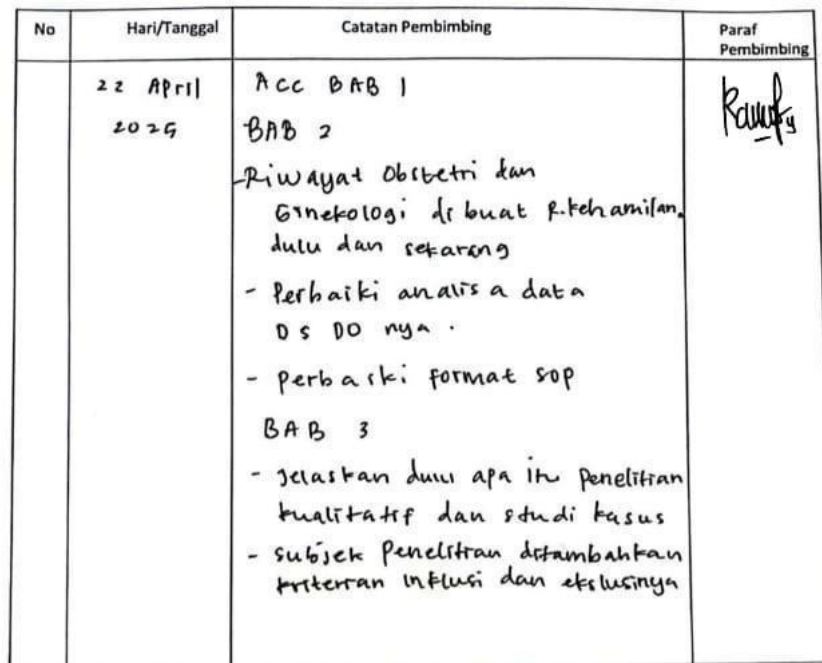 No Hari/Tanggal Catatan Pembimbing Paraf
Pembimbing
22 April
2025
ACC BAB 1
BAB 2
-Riwayat Obstetri dan
Ginekologi di buat R.kehamilan.
dulu dan sekarang
- Perbaiki analisa data
DS DO nya.
- perbaiki format SOP
BAB 3
- Jelaskan dulu apa itu Penelitian
kualitatif dan studi kasus
- subjek Penelitian ditambahkan
kriterian inklusi dan ekslusinya